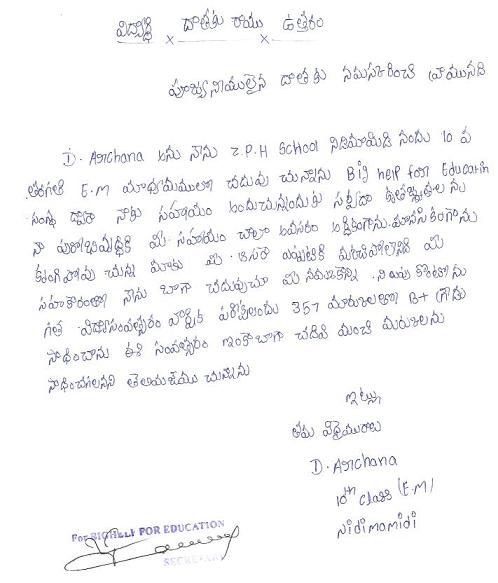 విద్యార్థి దాతకు రాయు ఉత్తరం
పూజ్యనీయులైన దాతకు నమస్కరించి వ్రాయునది
D. Archana అను నాను Z.P.H School నిడిమామిడి నందు 10 వ
తరగతి E.M మాధ్యమములో చదువు చున్నాను Big help for Education
సంస్థ ద్వారా నాకు సహాయం అందుచున్నందుకు సర్వదా కృతజ్ఞురాలను
నా పురోభివృద్ధికి మీ సహాయం చాలా అవసరం ఆర్థికంగాను. మానసికంగాను
కృంగిపోవు చున్న మాకు మీ ఎప్పటికి మరిచిపోలానిది మీ
సహకారంతో నాను బాగా చదువుచూ మీ
గత విద్యాసంవత్సరం వార్షిక పరీక్షలందు 357 మారుకులతో B+ గ్రేడు
సాధించాను ఈ సంవత్సరం ఇంకాబాగా చదివి మంచి మరుకులను
సాధించగలనని తెలియజేయు చున్నాను
ఇట్లు
తమ విధేయురాలు
D. Archana
10th class (E.M)
Nidimamidi
For BIGHELP FOR EDUCATION
SECRETARY